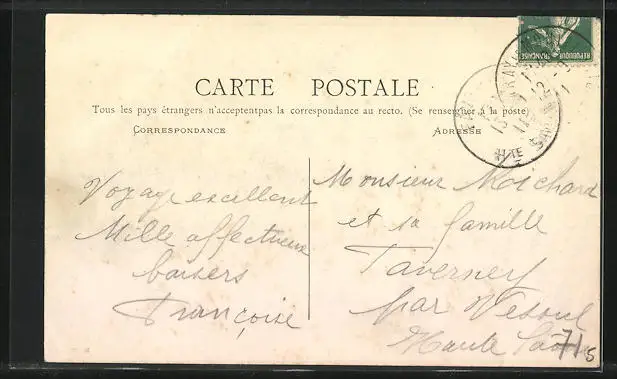 RÉPUBLIQUE FRANÇAISE
CARTE POSTALE
Tous les pays étrangers n'acceptentpas la correspondance au recto. (Se renseigner à la poste)
CORRESPONDANCE
ADRESSE
HTE
Voyage excellent
Mille affectueux
baisers
Françoise
Monsieur Mochard
et sa famille
Taverney
par Vesoul
Haute Saône